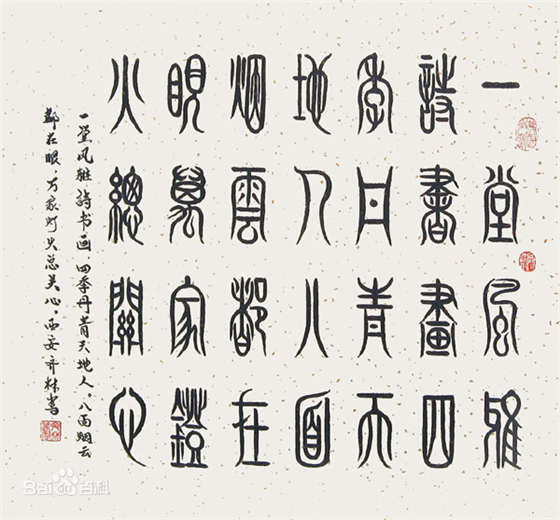 一堂風雅
詩書畫四
季丹青天
地人八面
烟雲都在
眼萬家鐙
火總關心
一堂风雅詩书画.四季丹青天地人，八面烟云
都在眼，万家灯火总关心。西安齐林書
Bai百科